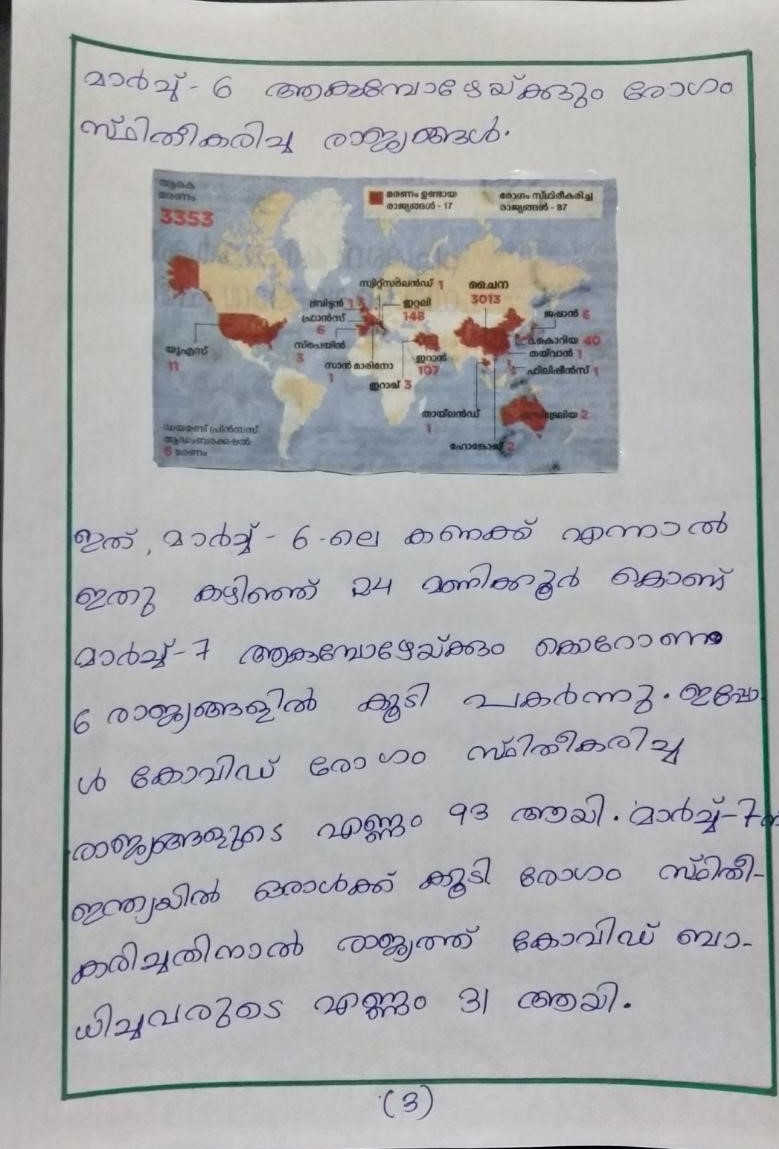 മാർച്ച്- 6 ആകുമ്പോഴേയ്ക്കും രോഗം
സ്ഥിതീകരിച്ച രാജ്യങ്ങൾ.
ആകെ
മരണം
3353
മരണം ഉണ്ടായ
രാജ്യങ്ങൾ - 17
രോഗം സ്ഥിരീകരിച്ച
രാജ്യങ്ങൾ - 87
സ്വിറ്റ്സർലൻഡ് 1
ചൈന
3013
ബ്രിട്ടൻ 1
ഇറ്റലി
148
ഫ്രാൻസ്
6
ജപ്പാൻ 6
ദ.കൊറിയ 40
സ്പെയിൻ
3
തയ്‌വാൻ 1
യുഎസ്
11
സാൻ മാരിനോ
1
ഇറാൻ
107
ഫിലിപ്പീൻസ് 1
ഇറാഖ് 3
തായ്‌ലൻഡ്
1
ഓസ്ട്രേലിയ 2
ഹോങ്കോങ് 2
ഡയമണ്ട് പ്രിൻസസ്
ആഡംബരക്കപ്പൽ
6 മരണം
ഇത്, മാർച്ച് - 6 -ലെ കണക്ക് എന്നാൽ
ഇതു കഴിഞ്ഞ് 24 മണിക്കൂർ കൊണ്ട്
മാർച്ച്-7 ആകുമ്പോഴേയ്ക്കും കൊറോണ
6 രാജ്യങ്ങളിൽ കൂടി പകർന്നു. ഇപ്പോ
ൾ കോവിഡ് രോഗം സ്ഥിതീകരിച്ച
രാജ്യങ്ങളുടെ എണ്ണം 93 ആയി. മാർച്ച്-7ന്
ഇന്ത്യയിൽ ഒരാൾക്ക് കൂടി രോഗം സ്ഥിതീ-
കരിച്ചതിനാൽ രാജ്യത്ത് കോവിഡ് ബാ-
ധിച്ചവരുടെ എണ്ണം 31 ആയി.
(3)